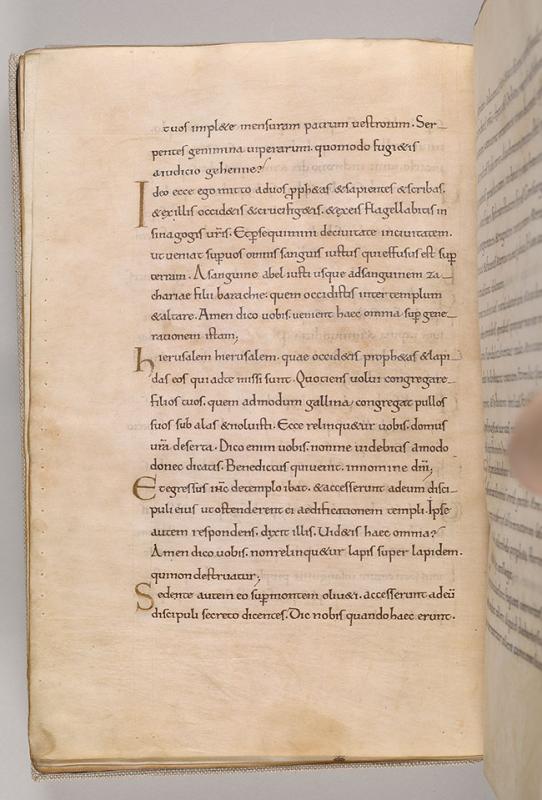 tuos impl&e mensuram patrum uestrorum. Ser
pentes genimina uiperarum. quomodo fugi&is
a iudicio gehenne?
Ideo ecce ego mitto ad uos pph&as & sapientes & scribas.
& ex illis occid&is & crucifig&is. & ex eis flagellabitis in
sinagogis uris. Et psequimini de ciuitate in ciuitatem.
ut ueniat sup uos omnis sanguis iustus qui effusus est sup
terram. A sanguine abel iusti usque ad sanguinem za
chariae filii barachie. quem occidistis inter templum
& altare. Amen dico uobis. uenient haec omnia sup gene
rationem istam;
hierusalem hierusalem. quae occid&is proph&as & lapi
das eos qui ad te missi sunt. Quotiens uolui congregare
filios tuos. quem admodum gallina congregat pullos
suos sub alas & noluisti. Ecce relinqu&ur uobis. domus
ura deserta. Dico enim uobis. non me uidebitis amodo
donec dicatis. Benedictus qui uenit. in nomine dni;
Et egressus ihc de templo ibat. & accesserunt ad eum disci
puli eius ut ostenderent ei aedificationem templi. Ipse
autem respondens. dixit illis. Uid&is haec omnia?
Amen dico uobis. non relinqu&ur lapis super lapidem.
qui non destruatur;
Sedente autem eo sup montem oliu&i. accesserunt ad eu
discipuli secreto dicentes. Dic nobis quando haec erunt.